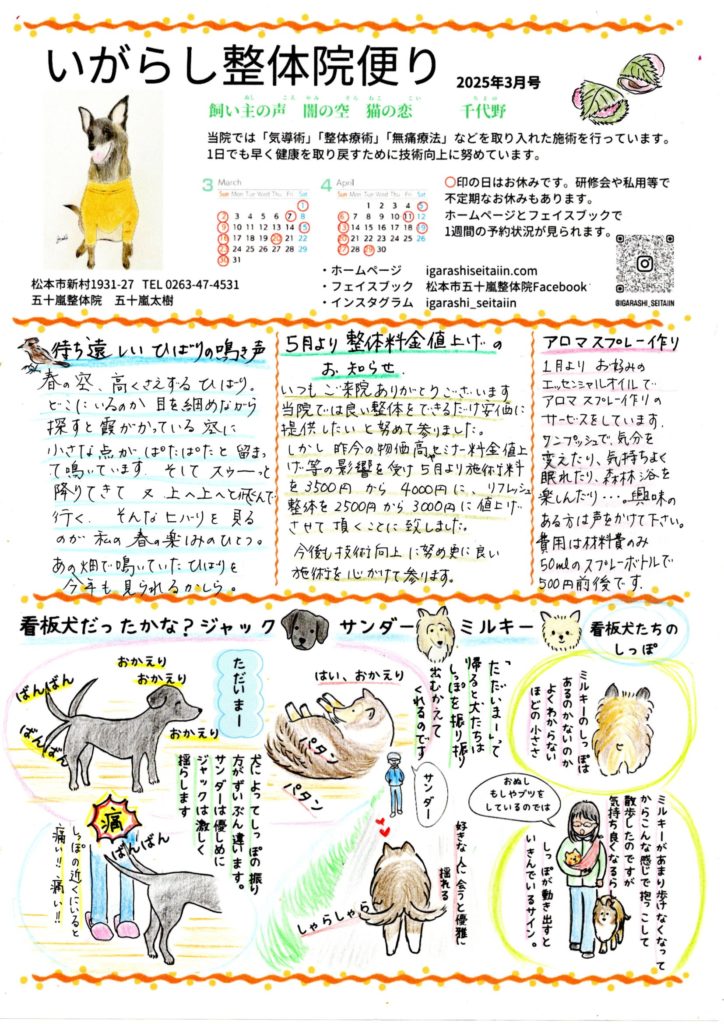 いがらし整体院便り
2025年3月号
飼い主の声　闇の空　猫の恋　千代野
当院では「気導術」「整体療術」「無痛療法」などを取り入れた施術を行っています。
1日でも早く健康を取り戻すために技術向上に努めています。
3 March
Sun Mon Tue Wed Thu Fri Sat
1
2 3 4 5 6 7 8
9 10 11 12 13 14 15
16 17 18 19 20 21 22
23 24 25 26 27 28 29
30 31
4 April
Sun Mon Tue Wed Thu Fri Sat
1 2 3 4 5
6 7 8 9 10 11 12
13 14 15 16 17 18 19
20 21 22 23 24 25 26
27 28 29 30
○印の日はお休みです。研修会や私用等で
不定期なお休みもあります。
ホームページとフェイスブックで
1週間の予約状況が見られます。
・ホームページ　igarashiseitaiin.com
・フェイスブック　松本市五十嵐整体院Facebook
・インスタグラム　igarashi_seitaiin
@IGARASHI_SEITAIIN
松本市新村1931-27 TEL 0263-47-4531
五十嵐整体院　五十嵐太樹
待ち遠しいひばりの鳴き声
春の空、高くさえずるひばり。
どこにいるのか目を細めながら
探すと霞がかっている空に
小さな点がぱたぱたと留まっ
て鳴いています。そしてスゥーっと
降りてきて又上へ上へと飛んで
行く。そんなヒバリを見る
のが私の春の楽しみのひとつ。
あの畑で鳴いていたひばりを
今年も見られるかしら。
5月より整体料金値上げの
お知らせ
いつもご来院ありがとうございます
当院では良い整体をできるだけ安価に
提供したいと努めて参りました。
しかし昨今の物価高やセミナー料金値上
げ等の影響を受け5月より施術料
を3500円から4000円に、リフレッシュ
整体を2500円から3000円に値上げ
させて頂くことに致しました。
今後も技術向上に努め更に良い
施術を心がけて参ります。
アロマスプレー作り
1月よりお好みの
エッセンシャルオイルで
アロマスプレー作りの
サービスをしています。
ワンプッシュで、気分を
変えたり、気持ちよく
眠れたり、森林浴を
楽しんだり・・・。興味の
ある方は声をかけて下さい。
費用は材料費のみ
50mlのスプレーボトルで
500円前後です.
看板犬だったかな？ジャック サンダー ミルキー
看板犬たちの
しっぽ
ただいまー
おかえり
おかえり
おかえり
ばんばん
ばんばん
犬によってしっぽの振り
方がずいぶん違います。
サンダーは優しめに
ジャックは激しく
揺らします
痛
ばんばん
しっぽの近くにいると
痛い!!痛い!!
はい、おかえり
パタン
パタン
「ただいまー」って
帰ると犬たちは
しっぽを振り振り
出むかえて
くれるのです
サンダー
好きな人に会うと優雅に
揺れる
しゃらしゃら
ミルキーのしっぽは
あるのかないのか
よくわからない
ほどの小ささ
おぬし
もしやプツを
しているのでは
ミルキーがあまり歩けなくなって
からこんな感じで抱っこして
散歩したのですが
気持ち良くなるら
しっぽが動き出すと
いきんでいるサイン。